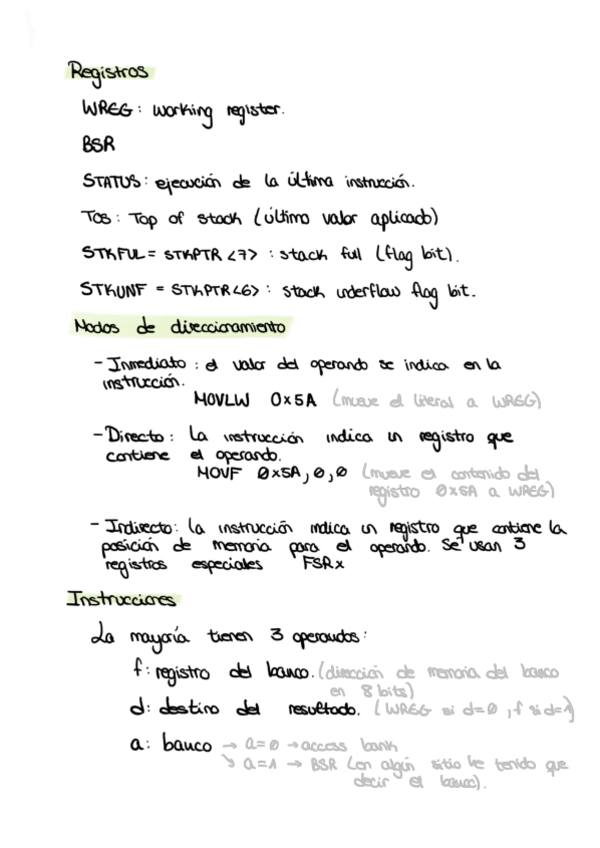 Registros
WREG: working register.
BSR
STATUS: ejecución de la última instrucción.
TOS: Top of stack (último valor aplicado)
STKFUL = STKPTR <7> : stack full (flag bit).
STKUNF = STKPTR<6> : stack underflow flag bit.
Modos de direccionamiento
- Inmediato : el valor del operando se indica en la
instrucción.
MOVLW 0x5A (mueve el literal a WREG)
- Directo: La instrucción indica un registro que
contiene el operando.
MOVF 0x5A, 0, 0 (mueve el contenido del
registro 0x5A a WREG)
- Indirecto: la instrucción indica un registro que contiene la
posición de memoria para el operando. Se usan 3
registros especiales FSRx
Instrucciones
La mayoría tienen 3 operandos:
f: registro del banco. (dirección de memoria del banco
en 8 bits)
d: destino del resultado. (WREG si d=0, f si d=1)
a: banco → a=0 → access bank
↘ a=1 → BSR (en algún sitio he tenido que
decir el banco).